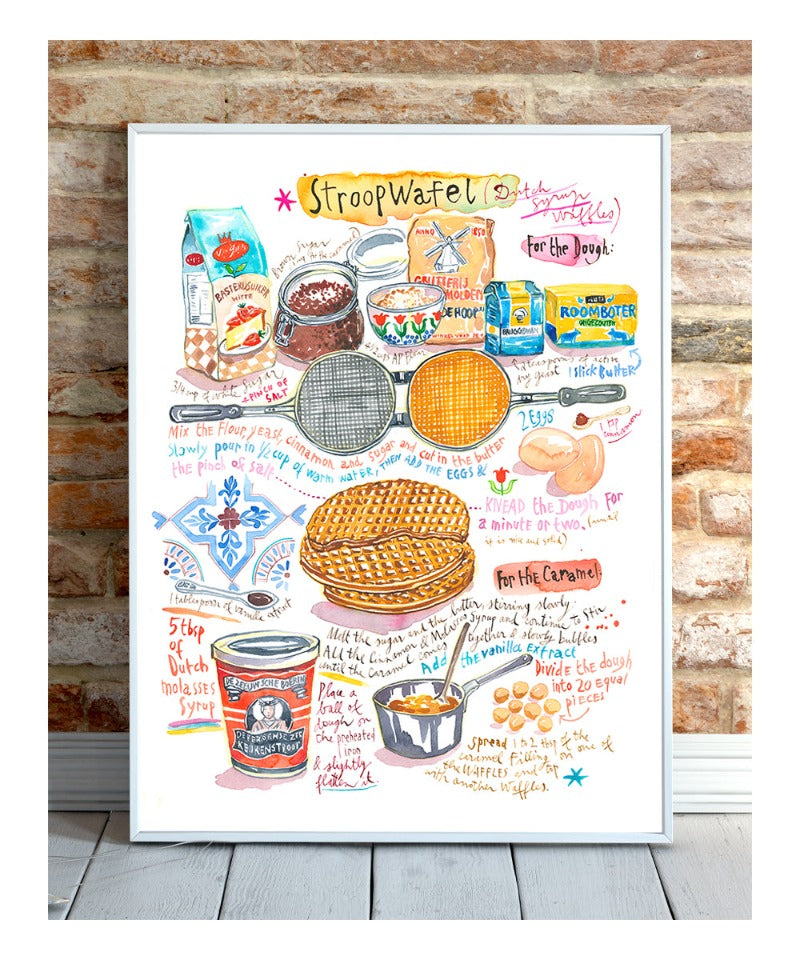 StroopWafel (Dutch
Syrup
Waffles)
For the Dough:
brown sugar
ANNO
BASTERDSUIKER
WITTE
DE HOEP"
ROOMBOTER
ONGEZOUTEN
3/4 cup of white sugar
+ PINCH OF
SALT
teaspoons of active
dry yeast
1 stick Butter
2 Eggs
1 tsp
cinnamon
Mix the Flour, yeast, cinnamon and sugar and cut in the butter
Slowly pour in 1/2 cup of warm water, THEN ADD THE EGGS &
the pinch of salt
KNEAD the Dough for
a minute or two. (until
it is nice and solid)
For the Caramel
1 tablespoon of vanilla extract
Melt the sugar and the butter, stirring slowly.
Add the Cinnamon & Molasses Syrup and continue to stir
until the Caramel comes together & slowly bubbles
Add the vanilla extract
5 tbsp
of
Dutch
molasses
Syrup
DE ZEEUWSCHE BOERIN
KEUKENSTROOP
Place a
ball of
dough on
the preheated
iron
& slightly
flatten it.
Divide the dough
into 20 equal
pieces
Spread 1 to 2 tbsp of the
caramel filling on one of
the WAFFLES and top
with another Waffles.